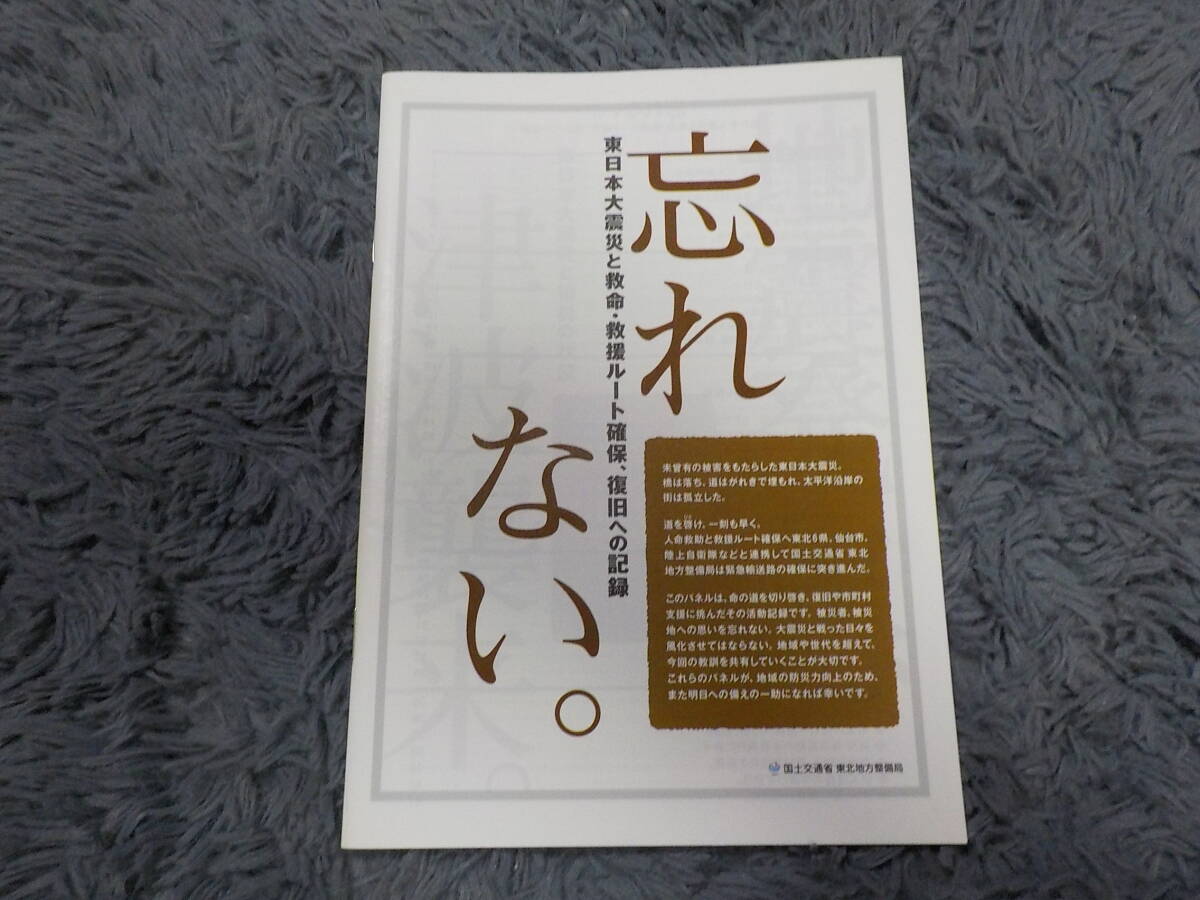 忘れ
ない。
東日本大震災と救命・救援ルート確保、復旧への記録
未曾有の被害をもたらした東日本大震災。
橋は落ち、道はがれきで埋もれ、太平洋沿岸の
街は孤立した。
道を啓け、一刻も早く。
人命救助と救援ルート確保へ東北6県、仙台市、
陸上自衛隊などと連携して国土交通省 東北
地方整備局は緊急輸送路の確保に突き進んだ。
このパネルは、命の道を切り啓き、復旧や市町村
支援に挑んだその活動記録です。被災者、被災
地への思いを忘れない。大震災と戦った日々を
風化させてはならない。地域や世代を超えて、
今回の教訓を共有していくことが大切です。
これらのパネルが、地域の防災力向上のため、
また明日への備えの一助になれば幸いです。
国土交通省 東北地方整備局